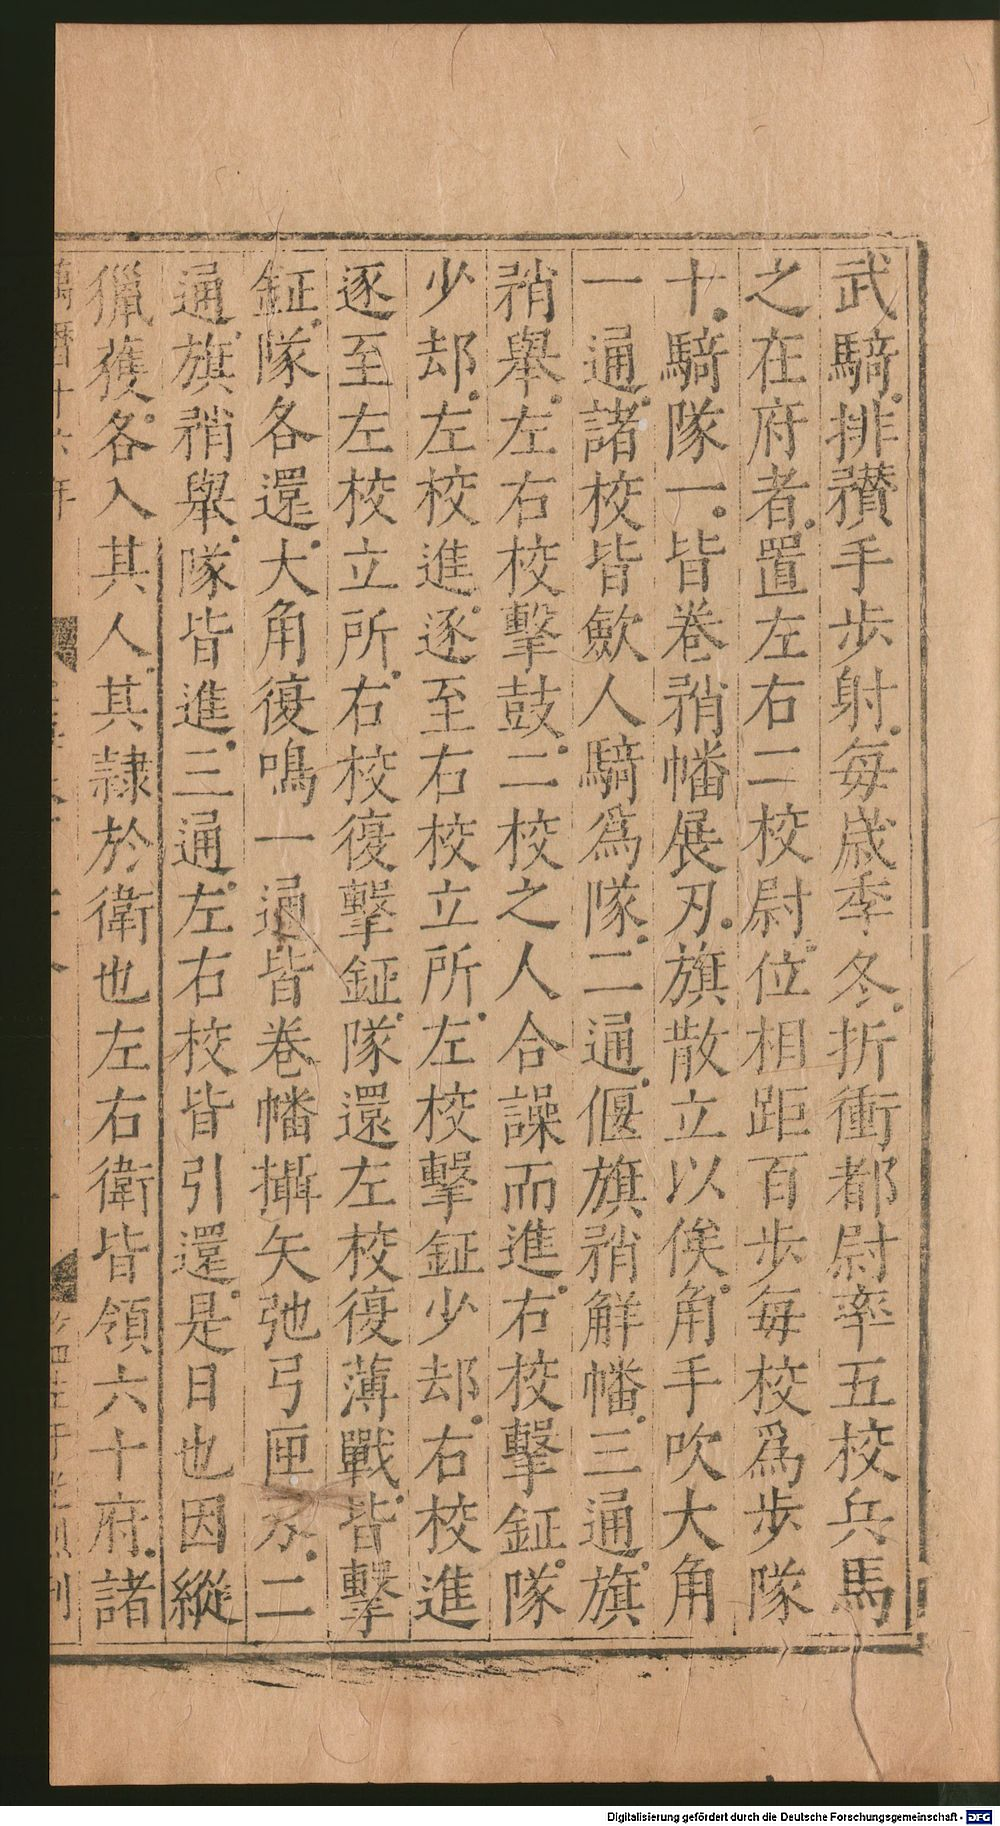 武騎排䂎手步射每歲季冬折衝都尉率五校兵馬
之在府者置左右二校尉位相距百步每校爲步隊
十騎隊一皆卷矟幡展刃旗散立以俟角手吹大角
一通諸校皆斂人騎爲隊二通偃旗矟解幡三通旗
矟舉左右校擊鼓二校之人合譟而進右校擊鉦隊
少却左校進逐至右校立所左校擊鉦少却右校進
逐至左校立所右校復擊鉦隊還左校復薄戰皆擊
鉦隊各還大角復鳴一通皆卷幡攝矢弛弓匣刃二
通旗矟舉隊皆進三通左右校皆引還是日也因縱
獵獲各入其人其隷於衛也左右衛皆領六十府諸
萬曆十六年
刊
Digitalisierung gefördert durch die Deutsche Forschungsgemeinschaft - DFG